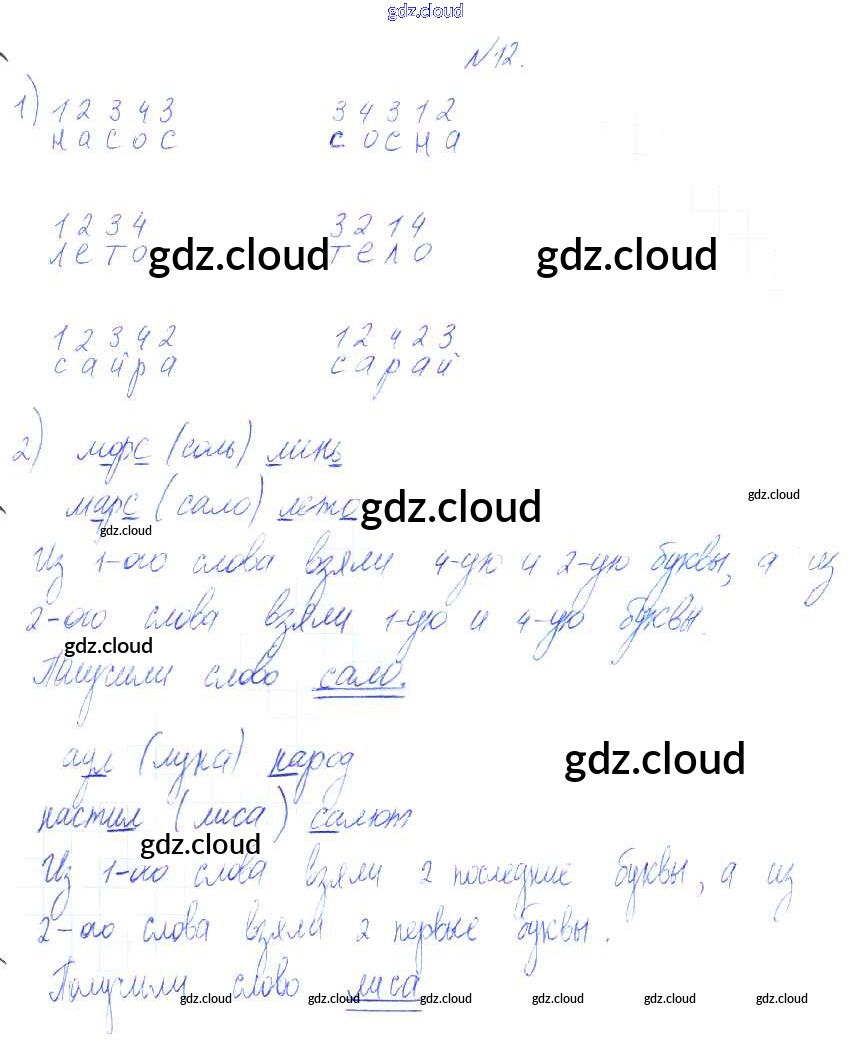 gdz.cloud
№12.
1) 1 2 3 4 3 3 4 3 1 2
н а с о с с о с н а
1 2 3 4 3 2 1 4
л е т о gdz.cloud т е л о gdz.cloud
1 2 3 4 2 1 2 4 2 3
с а й р а с а р а й
2) морс (соль) линь
марс (сало) лето gdz.cloud gdz.cloud
gdz.cloud
Из 1-ого слова взяли 4-ую и 2-ую буквы, а из
2-ого слова взяли 1-ую и 4-ую буквы.
gdz.cloud
Получили слово сало.
аул (луна) народ gdz.cloud
настил (лиса) салют
gdz.cloud
Из 1-ого слова взяли 2 последние буквы, а из
2-ого слова взяли 2 первые буквы.
Получили слово лиса
gdz.cloud gdz.cloud gdz.cloud gdz.cloud gdz.cloud gdz.cloud